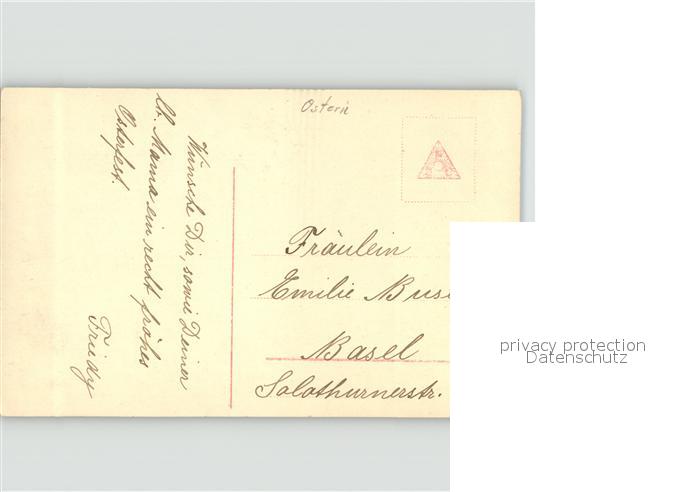 Ostern
Wünsche Dir, sowie Deiner
lb. Mama ein recht frohes
Osterfest.
Friedy
Fräulein
Emilie
Basel
Solothurnerstr.
privacy protection
Datenschutz